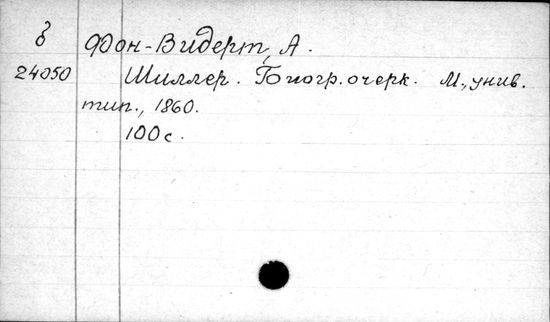 б Фон-Видерт, А.
24050 Шиллер. Биогр. очерк. М., унив.
тип., 1860.
100 с.